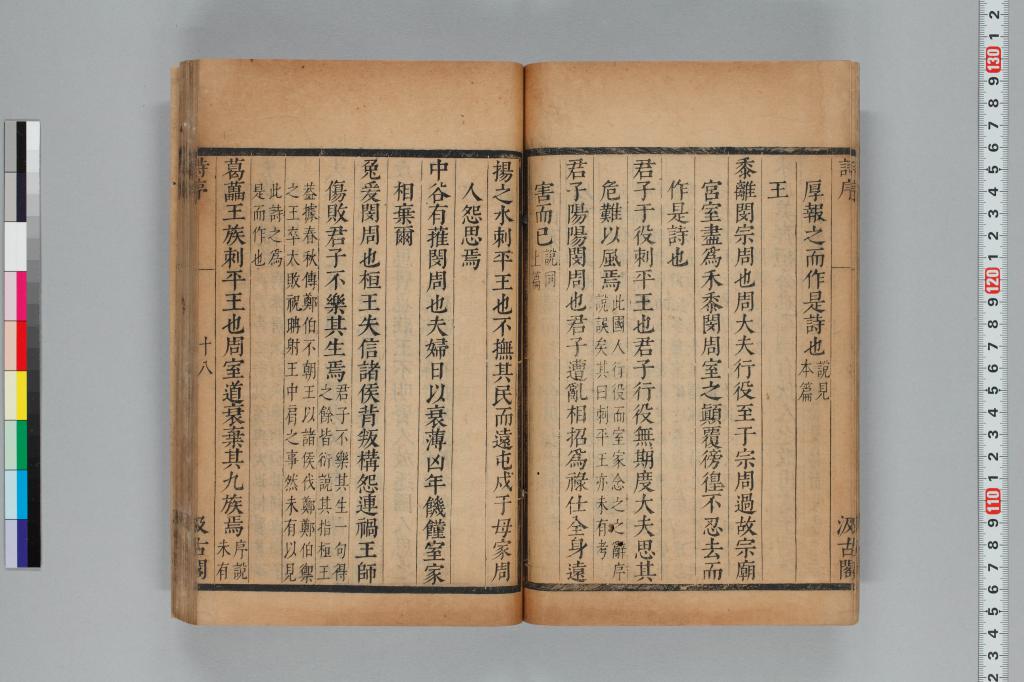 詩序
汲古閣
厚報之而作是詩也說見本篇
王
黍離閔宗周也周大夫行役至于宗周過故宗廟
宮室盡為禾黍閔周室之顛覆徬徨不忍去而
作是詩也
君子于役刺平王也君子行役無期度大夫思其
危難以風焉此國人行役而室家念之之辭序說誤矣其曰刺平王亦未有考
君子陽陽閔周也君子遭亂相招為祿仕全身遠
害而已說同上篇
揚之水刺平王也不撫其民而遠屯戍于母家周
人怨思焉
中谷有蓷閔周也夫婦日以衰薄凶年饑饉室家
相棄爾
兔爰閔周也桓王失信諸侯背叛構怨連禍王師
傷敗君子不樂其生焉君子不樂其生一句得之餘皆衍說其指桓王
葢據春秋傳鄭伯不朝王以諸侯伐鄭鄭伯禦之王卒大敗祝聃射王中肩之事然未有以見
此詩之為是而作也
葛藟王族刺平王也周室道衰棄其九族焉序說未有
詩序
十八
汲古閣
12
130
9
8
7
6
5
4
3
2
1
120
9
8
7
6
5
4
3
2
1
110
9
8
7
6
5
4
3
2